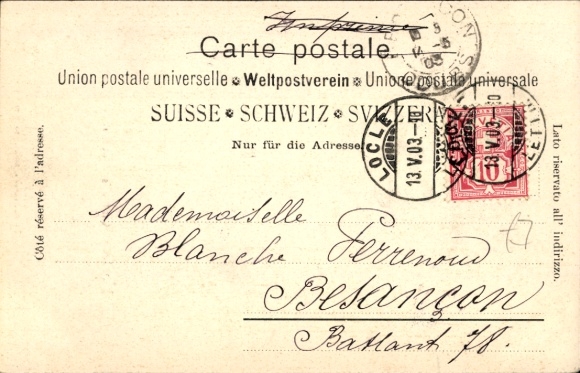 Imprimé
Carte postale.
Union postale universelle * Weltpostverein * Unione postale universale
SUISSE * SCHWEIZ * SVIZZERA
Nur für die Adresse.
Côté réservé à l'adresse.
Lato riservato all' indirizzo.
LOCLE
13.V.03-10
LOCLE
13.V.03-10
LETT.
10
Mademoiselle
Blanche Perrenoud
Besançon
Battant 78.